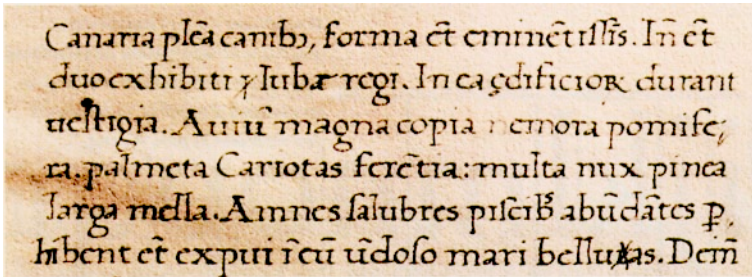 Canaria plēa canibꝫ, forma ēt eminētissīs. Iñ ēt
duo exhibiti ⁊ Iubæ regi. In ea ędificioꝝ durant
uestigia. Auiū magna copia nemora pomife;
ra. palmeta Cariotas ferētia: multa nux pinea
larga mella. Amnes salubres piscibꝰ abūdātes ꝑ
hibent et̄ expui ī eū ūdoso mari belluas. Dein̄